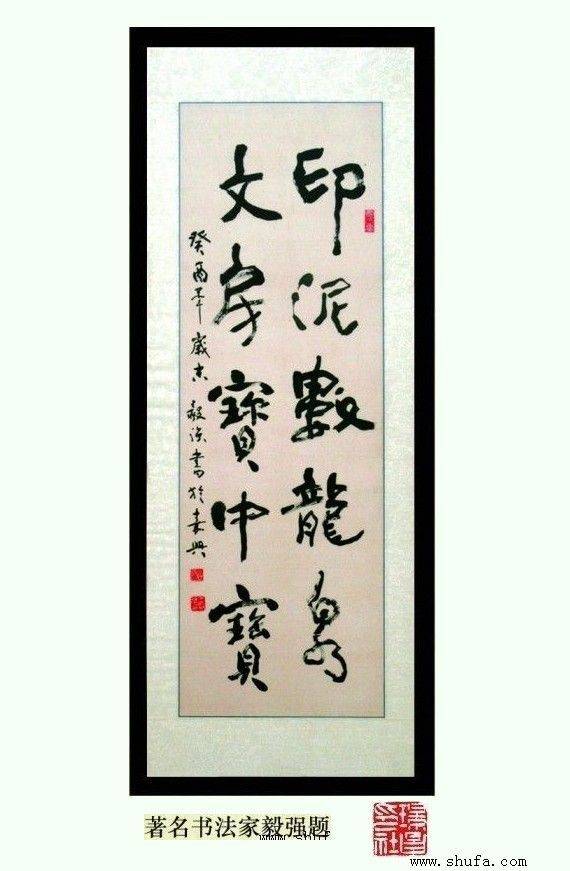 印泥數龍泉
文房寶中寶
癸酉年歲末 毅强書於嘉興
著名书法家毅强题
www.shufa.com